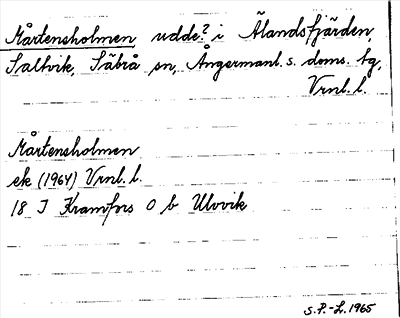 Mårtensholmen, udde? i Älandsfjärden,
Saltvik, Säbrå sn, Ångermanl. s. doms. tg,
Vrnl. l.
Mårtensholmen
ek (1964) Vrnl. l.
18 I Kramfors O b Ulvvik
S.P.-L. 1965